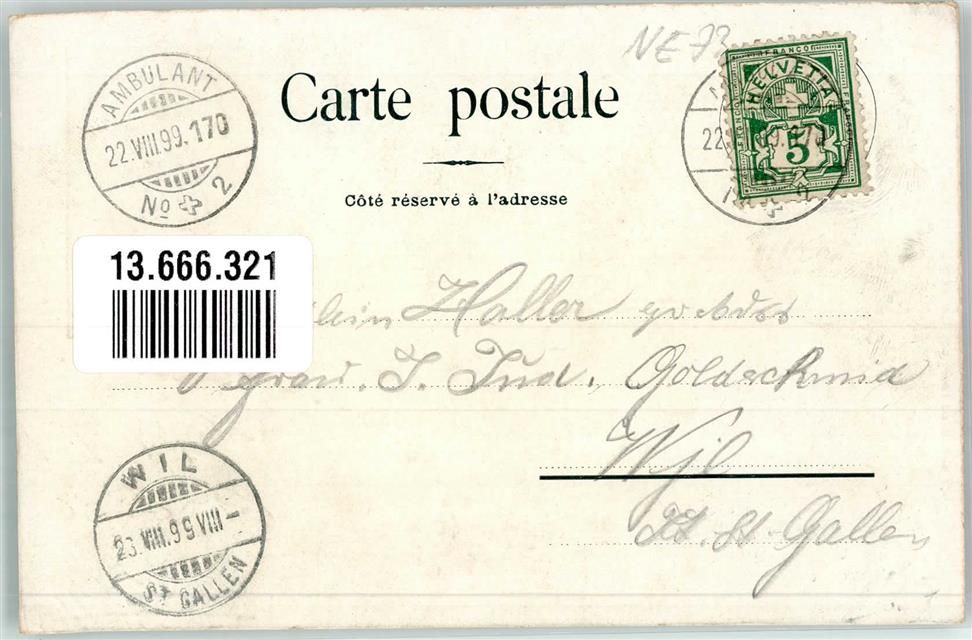 NE 73
AMBULANT
22.VIII.99.170
No 2
Carte postale
Côté réservé à l'adresse
FRANCO
HELVETIA
5
22
13.666.321
Haller
Frau. J. Jud. Goldschmid
Wyl
Kt. St. Gallen
WIL
23.VIII.99 VIII–
ST GALLEN